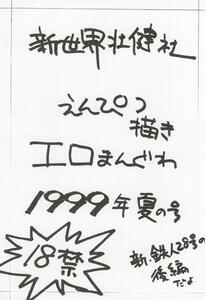 新世界壮健社
えんぴつ
描き
エロまんがわ
1999年夏の号
18禁
新・鉄人28号の
後編
だよ